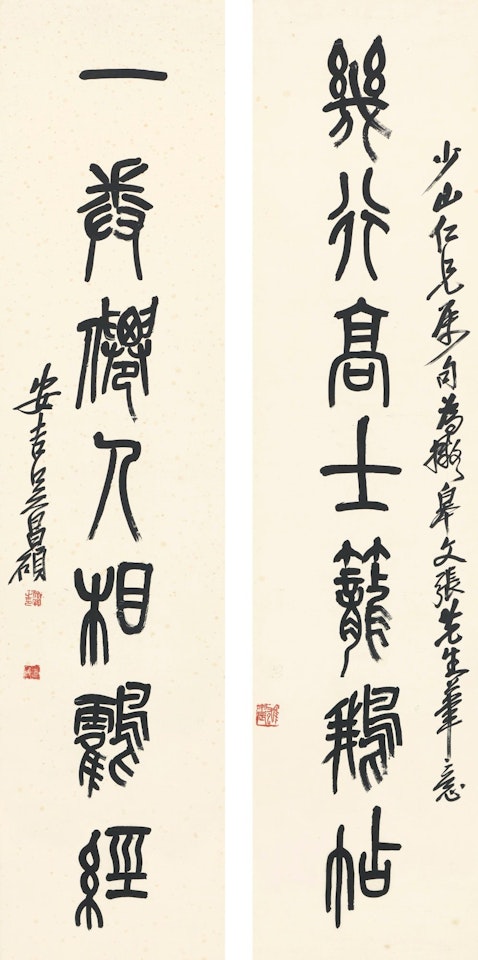 少山仁兄屬句為皋文張先生筆意
幾行高士籠鵝帖
一卷僊人相鶴經
安吉吳昌碩